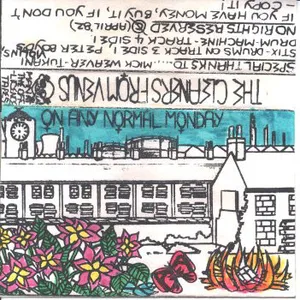 SPECIAL THANKS TO .... MICK WEAVER-TUKANI
STIX-DRUMS ON TRACK 5 SIDE 1 PETER
DRUM-MACHINE-TRACK 4 SIDE 1
NO RIGHTS RESERVED © (APRIL 82)
IF YOU HAVE MONEY, BUY IT, IF YOU DON'T
- COPY IT!
THE CLEANERS FROM VENUS
ON ANY NORMAL MONDAY